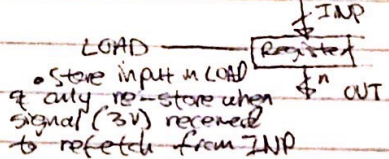 INP
LOAD
Register
n
OUT
• Store input in LOAD
& only re-store when
signal (3V) received
to refetch from INP